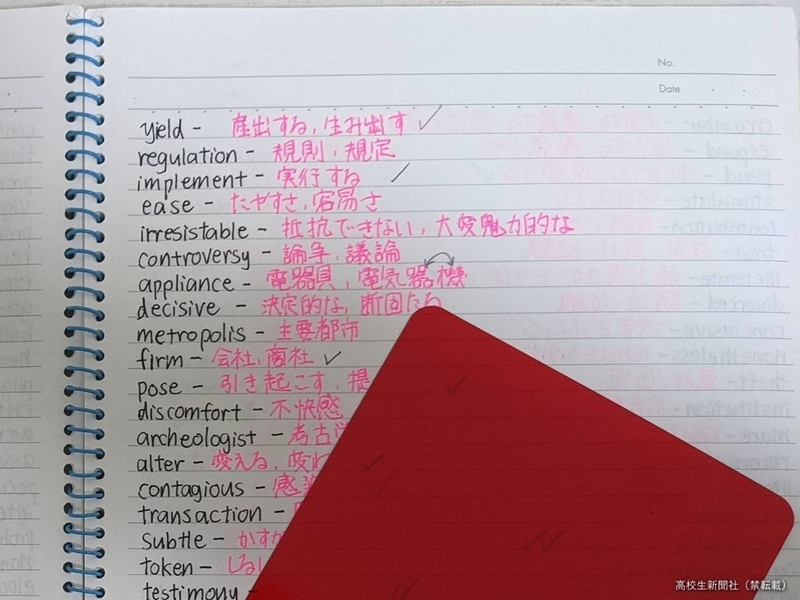 No.
Date
yield - 産出する, 生み出す ✓
regulation - 規則, 規定
implement - 実行する ✓
ease - たやすさ, 容易さ
irresistable - 抵抗できない, 大変魅力的な
controversy - 論争, 議論
appliance - 電器具, 電気器機
decisive - 決定的な, 断固たる
metropolis - 主要都市
firm - 会社, 商社 ✓
pose - 引き起こす, 提
discomfort - 不快感
archeologist - 考古学
alter - 変える, 変わ
contagious - 感染
transaction -
subtle - かすか
token - しるし
testimony -
高校生新聞社（禁転載）